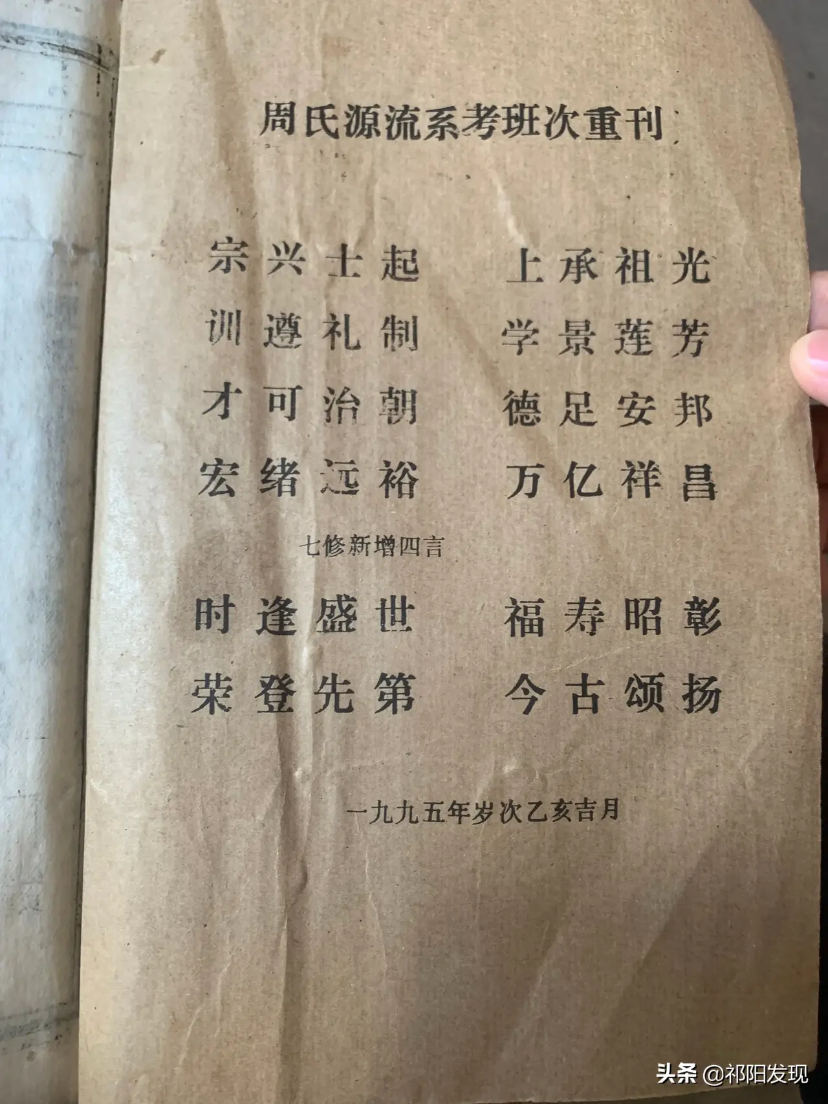 周氏源流系考班次重刊
宗兴士起 上承祖光
训遵礼制 学景莲芳
才可治朝 德足安邦
宏绪远裕 万亿祥昌
七修新增四言
时逢盛世 福寿昭彰
荣登先第 今古颂扬
一九九五年岁次乙亥吉月
头条 @祁阳发现